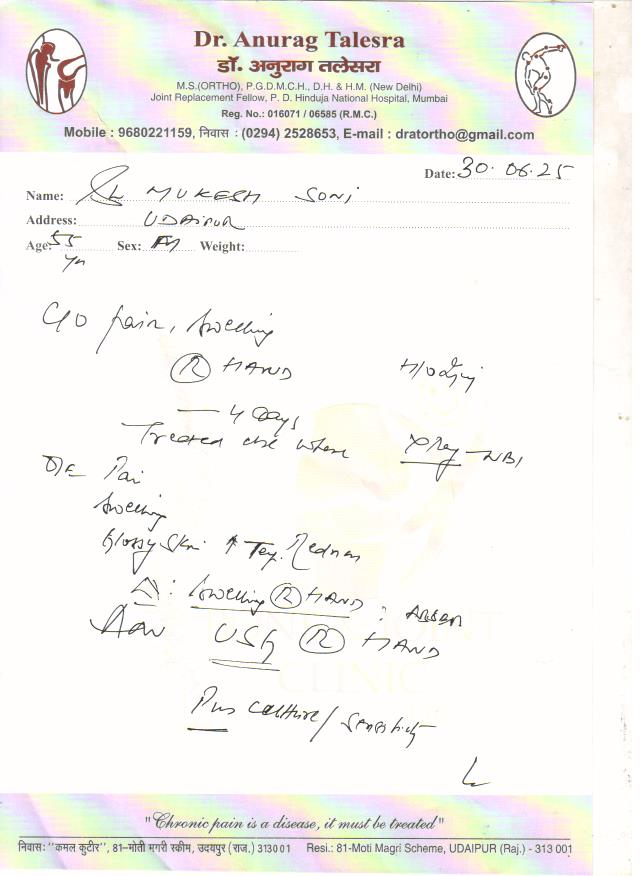 Dr. Anurag Talesra
डॉ. अनुराग तलेसरा
M.S.(ORTHO), P.G.D.M.C.H., D.H. & H.M. (New Delhi)
Joint Replacement Fellow, P. D. Hinduja National Hospital, Mumbai
Reg. No.: 016071 / 06585 (R.M.C.)
Mobile : 9680221159, निवास : (0294) 2528653, E-mail : dratortho@gmail.com
Date: 30.06.25
Name: MUKESH SONI
Address: UDAIPUR
Age: 55 yr Sex: M Weight:
C/O pain, swelling
(R) HAND H/O Inj
— 4 Days
Treated else where X Ray - NBI
O/E Pain
Swelling
Glossy Skin ↑ Temp. Redness
Δ: Swelling (R) HAND :
Adv USG (R) HAND
Pus culture/ Sensitivity
"Chronic pain is a disease, it must be treated"
निवास: "कमल कुटीर", 81-मोती मगरी स्कीम, उदयपुर (राज.) 313001 Resi.: 81-Moti Magri Scheme, UDAIPUR (Raj.) - 313 001